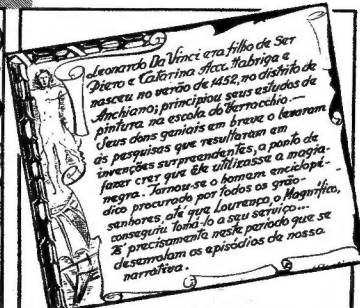 Leonardo Da Vinci era filho de Ser
Piero e Catarina Acc. Habriga e
nasceu no verão de 1452, no distrito de
Anchiano; principiou seus estudos de
pintura na escola do Verrocchio.—
Seus dons geniais em breve o levaram
às pesquisas que resultaram em
invenções surpreendentes, a ponto de
fazer crer que êle utilizasse a magia-
negra. Tornou-se o homem enciclopé-
dico procurado por todos os grão-
senhores, até que Lourenço, o Magnífico,
conseguiu tomá-lo a seu serviço...
É precisamente neste período que se
desenrolam os episódios de nossa
narrativa.